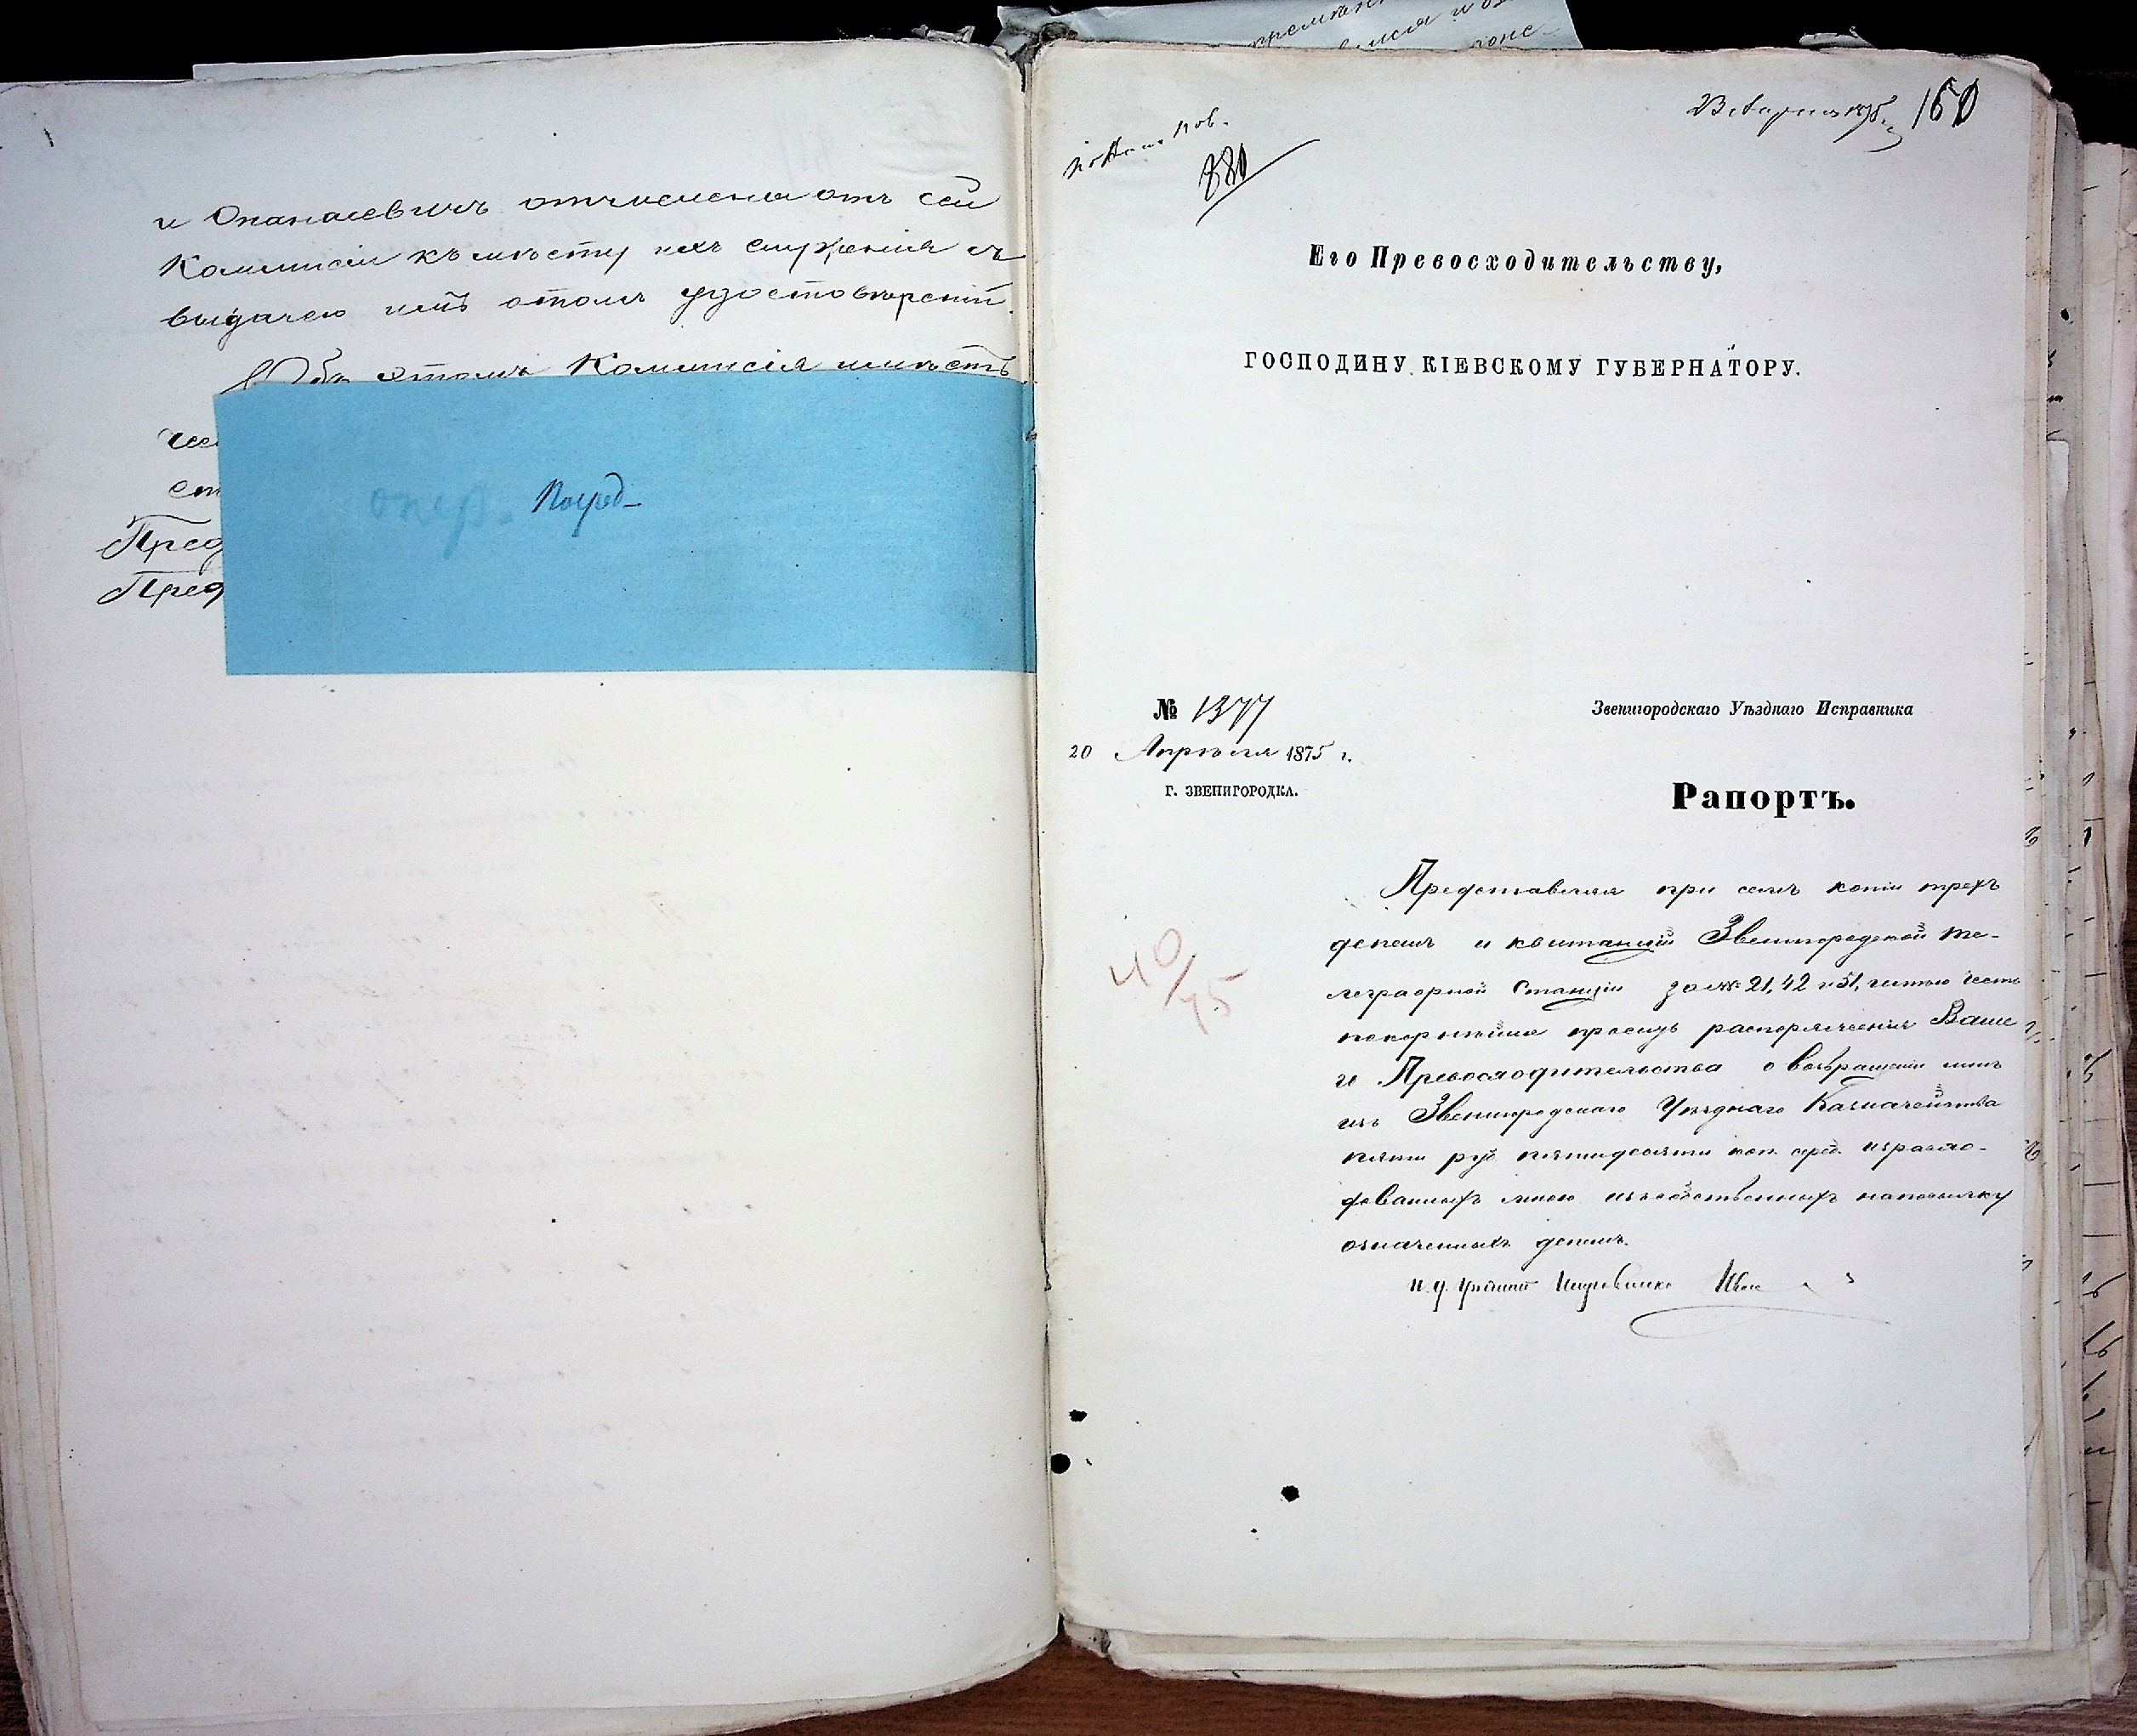 и Опанасевичъ отчислены отъ сей
Коммисіи къ мѣсту ихъ служенія съ
выдачею имъ о томъ удостовѣреній.
Объ этомъ Коммисія имѣетъ
чес
ст
Пред
Пред
Посред-
23 Апреля 1875 г.
160
880
Его Превосходительству,
ГОСПОДИНУ КІЕВСКОМУ ГУБЕРНАТОРУ.
№ 1377
20 Апрѣля 1875 г.
Г. ЗВЕНИГОРОДКА.
Звенигородскаго Уѣзднаго Исправника
Рапортъ.
40/75
Представляя при семъ копіи трехъ
депешъ и квитанцій Звенигородской те-
леграфной Станціи за №№ 21, 42 и 51, имѣю честь
покорнѣйше просить распоряженія Ваше
го Превосходительства о возвращеніи мнѣ
изъ Звенигородскаго Уѣзднаго Казначейства
пяти руб. пятидесяти коп. сереб. израсхо-
дованныхъ мною изъ собственныхъ на посылку
означенныхъ депешъ.
И. д. Уѣзднаго Исправника